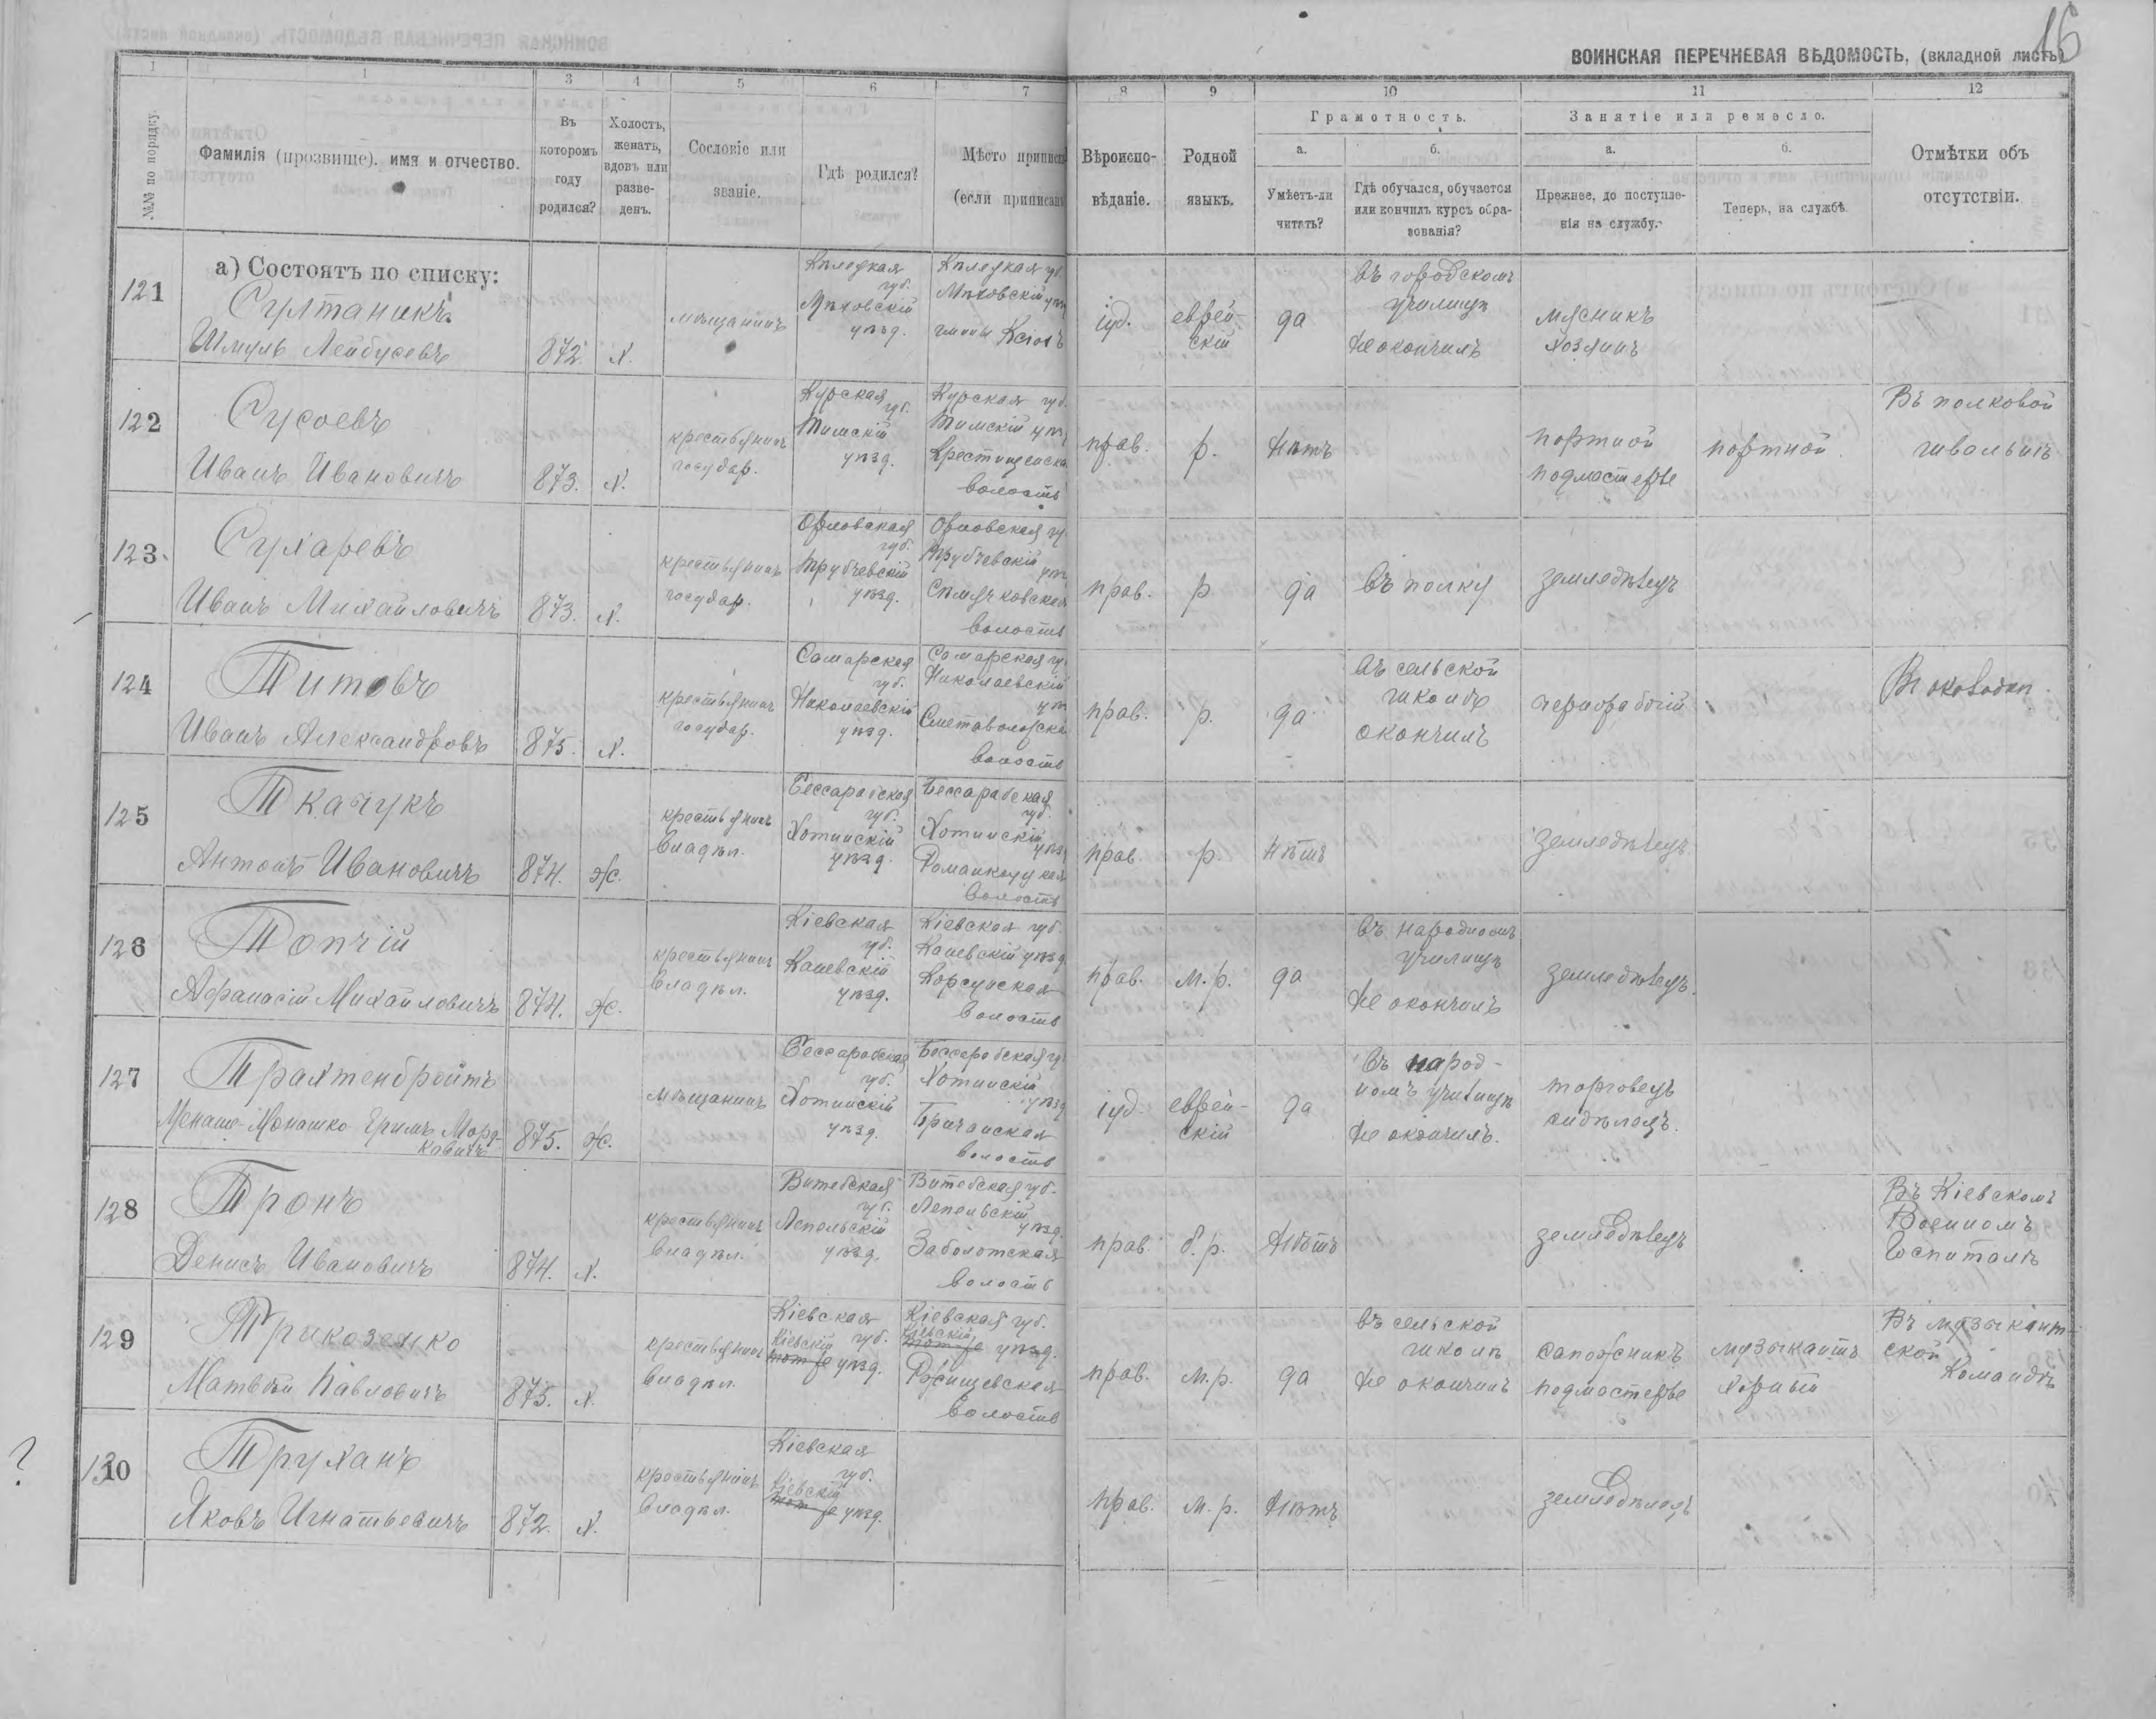 16
ВОИНСКАЯ ПЕРЕЧНЕВАЯ ВѢДОМОСТЬ, (вкладной листъ)
1 1 3 4 5 6 7 8 9 10 11 12
№№ по порядку.
Фамилія (прозвище), имя и отчество.
Въ которомъ году родился?
Холостъ, женатъ, вдовъ или разве-денъ.
Сословіе или званіе.
Гдѣ родился?
Мѣсто приписки
(если приписанъ
Вѣроиспо-вѣданіе.
Родной языкъ.
Грамотность.
а. Умѣетъ-ли читать?
б. Гдѣ обучался, обучается или кончилъ курсъ обра-зованія?
Занятіе или ремесло.
а. Прежнее, до поступле-нія на службу.
б. Теперь, на службѣ.
Отмѣтки объ отсутствіи.
а) Состоятъ по списку:
121
Султаникъ
Шмуль Лейбусевъ
872. х.
мѣщанинъ
Кѣлецкая губ. Мѣховскій уѣзд.
Кѣлецкая гу. Мѣховскій уѣз гмины
іуд.
еврей-скій
въ городскомъ училищѣ не окончилъ
мясникъ хозяинъ
122
Сусоевъ
Иванъ Ивановичъ
873. х.
крестьянинъ государ.
Курская губ. Тимскій уѣзд.
Курская гу. Тимскій уѣз Крестищенска волость
прав. р. нѣтъ
портной подмастерье
портной.
Въ полковой швальнѣ
123
Сухаревъ
Иванъ Михайловичъ
873. х.
крестьянинъ государ.
Орловская губ. Трубчевскій уѣзд.
Орловская гу. Трубчевскій уѣз волость
прав. р. да
въ полку
земледѣлецъ
124
Титовъ
Иванъ Александровъ
875. х.
крестьянинъ государ.
Самарская губ. Николаевскій уѣзд.
Самарская гу. Николаевскій уѣз волость
прав. р. да
въ сельской школѣ окончилъ
чернорабочій
Въ околодкѣ.
125
Ткачукъ
Антонъ Ивановичъ
874. ж.
крестьянинъ владѣл.
Бессарабская губ. Хотинскій уѣзд.
Бессарабская губ. Хотинскій уѣзд Романкоуцкая волость
прав. р. нѣтъ
земледѣлецъ
126
Топчій
Афанасій Михайловичъ
874. ж.
крестьянинъ владѣл.
Кіевская губ. Каневскій уѣзд.
Кіевская губ. Каневскій уѣзд Корсунская волость
прав. м.р. да
въ народномъ училищѣ не окончилъ
земледѣлецъ.
127
Трахтенбройтъ
Менаше-Монашко Морд-ковичъ
875. ж.
мѣщанинъ
Бессарабская губ. Хотинскій уѣзд.
Бессарабская гу Хотинскій уѣзд Бричанская волость
іуд. еврей-скій да
въ народ-номъ училищѣ не окончилъ.
торговецъ сидѣлецъ.
128
Тронъ
Денисъ Ивановичъ
874. х.
крестьянинъ владѣл.
Витебская губ. Лепельскій уѣзд.
Витебская губ. Лепельскій уѣзд. Заболотская волость
прав. б.р. нѣтъ
земледѣлецъ
Въ Кіевскомъ Военномъ Госпиталѣ
129
Трикозенко
Матвѣй Павловичъ
875. х.
крестьянинъ владѣл.
Кіевская губ. Кіевскій уѣзд.
Кіевская губ. Кіевскій уѣзд. Ржищевская волость
прав. м.р. да
въ сельской школѣ не окончилъ
сапожникъ подмастерье
музыкантъ хорный
Въ музыкант-ской Командѣ
130
Труханъ
Яковъ Игнатьевичъ
872. х.
крестьянинъ владѣл.
Кіевская губ. Кіевскій уѣзд.
прав. м.р. нѣтъ
земледѣлецъ
?